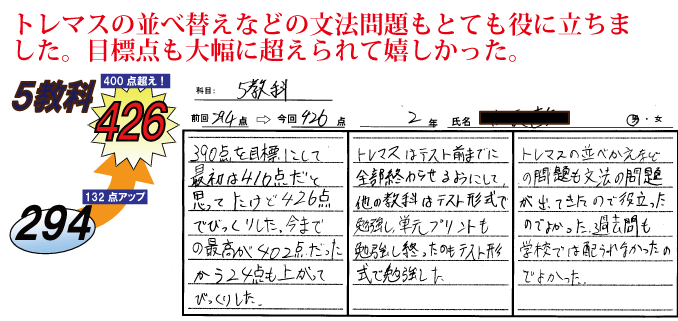 トレマスの並べ替えなどの文法問題もとても役に立ちま
した。目標点も大幅に超えられて嬉しかった。
5教科
400点超え！
426
132点アップ
294
科目： 5教科
前回 294 点 ⇨ 今回 426 点 2 年 氏名 男・女
390点を目標にして
最初は416点だと
思ってたけど426点
でびっくりした。今まで
の最高が402点だった
から24点も上がって
びっくりした。
トレマスはテスト前までに
全部終わらせるようにして、
他の教科はテスト形式で
勉強し、単元プリントも
勉強し終ったのもテスト形
式で勉強した
トレマスの並べかえなど
の問題も文法の問題
が出てきたので役立った
のでよかった。過去問も
学校では配られなかったの
でよかった。